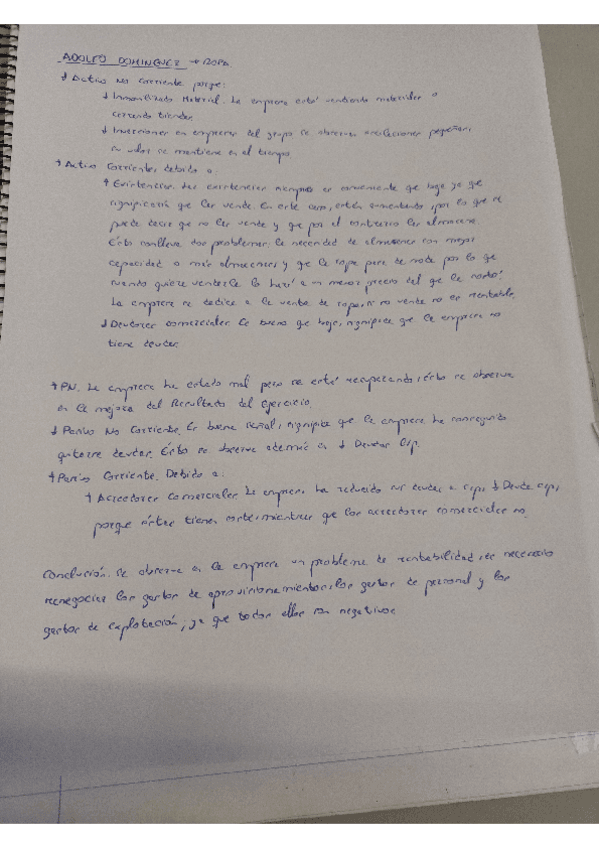 ADOLFO DOMINGUEZ → ROPA
↓ Activo No corriente porque:
↓ Inmovilizado Material. La empresa está vendiendo materiales o
cerrando tiendas
↓ Inversiones en empresas del grupo se observan oscilaciones pequeñas
su valor se mantiene en el tiempo
↑ Activo Corriente, debido a:
↑ Existencias. Las existencias siempre es conveniente que baje ya que
significaría que las vende. En este caso, están aumentando, por lo que se
puede decir que no las vende y que por el contrario las almacena.
Esto conlleva dos problemas: la necesidad de almacenes con mayor
capacidad o más almacenes y que la ropa pasa de moda por lo que
cuando quiera venderla lo hará a un menor precio del que le costó.
La empresa se dedica a la venta de ropa, si no vende no es rentable.
↓ Deudores comerciales. Es bueno que baje, significa que la empresa no
tiene deudas.
↑ PN. La empresa ha estado mal pero se está recuperando, esto se observa
en la mejora del Resultado del Ejercicio.
↓ Pasivo No Corriente. Es buena señal, significa que la empresa ha conseguido
quitarse deudas. Esto se observa además en ↓ Deudas c/p.
↑ Pasivo Corriente. Debido a:
↑ Acreedores Comerciales. La empresa ha reducido sus deudas a c/p, ↓ Deuda c/p,
porque éstas tienen coste mientras que los acreedores comerciales no.
Conclusión. Se observa en la empresa un problema de rentabilidad, es necesario
renegociar los gastos de aprovisionamientos, los gastos de personal y los
gastos de explotación, ya que todos ellos son negativos